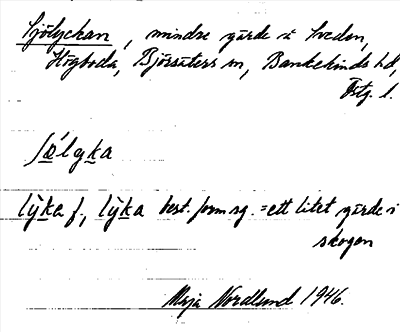 Sjölyckan, mindre gärde i Svedan,
Högboda, Björsäters sn, Bankekinds hd,
Östg. l.
sǿlyka
lyka f., lyka best. form sg. = ett litet gärde i
skogen
Maja Nordlund 1946.